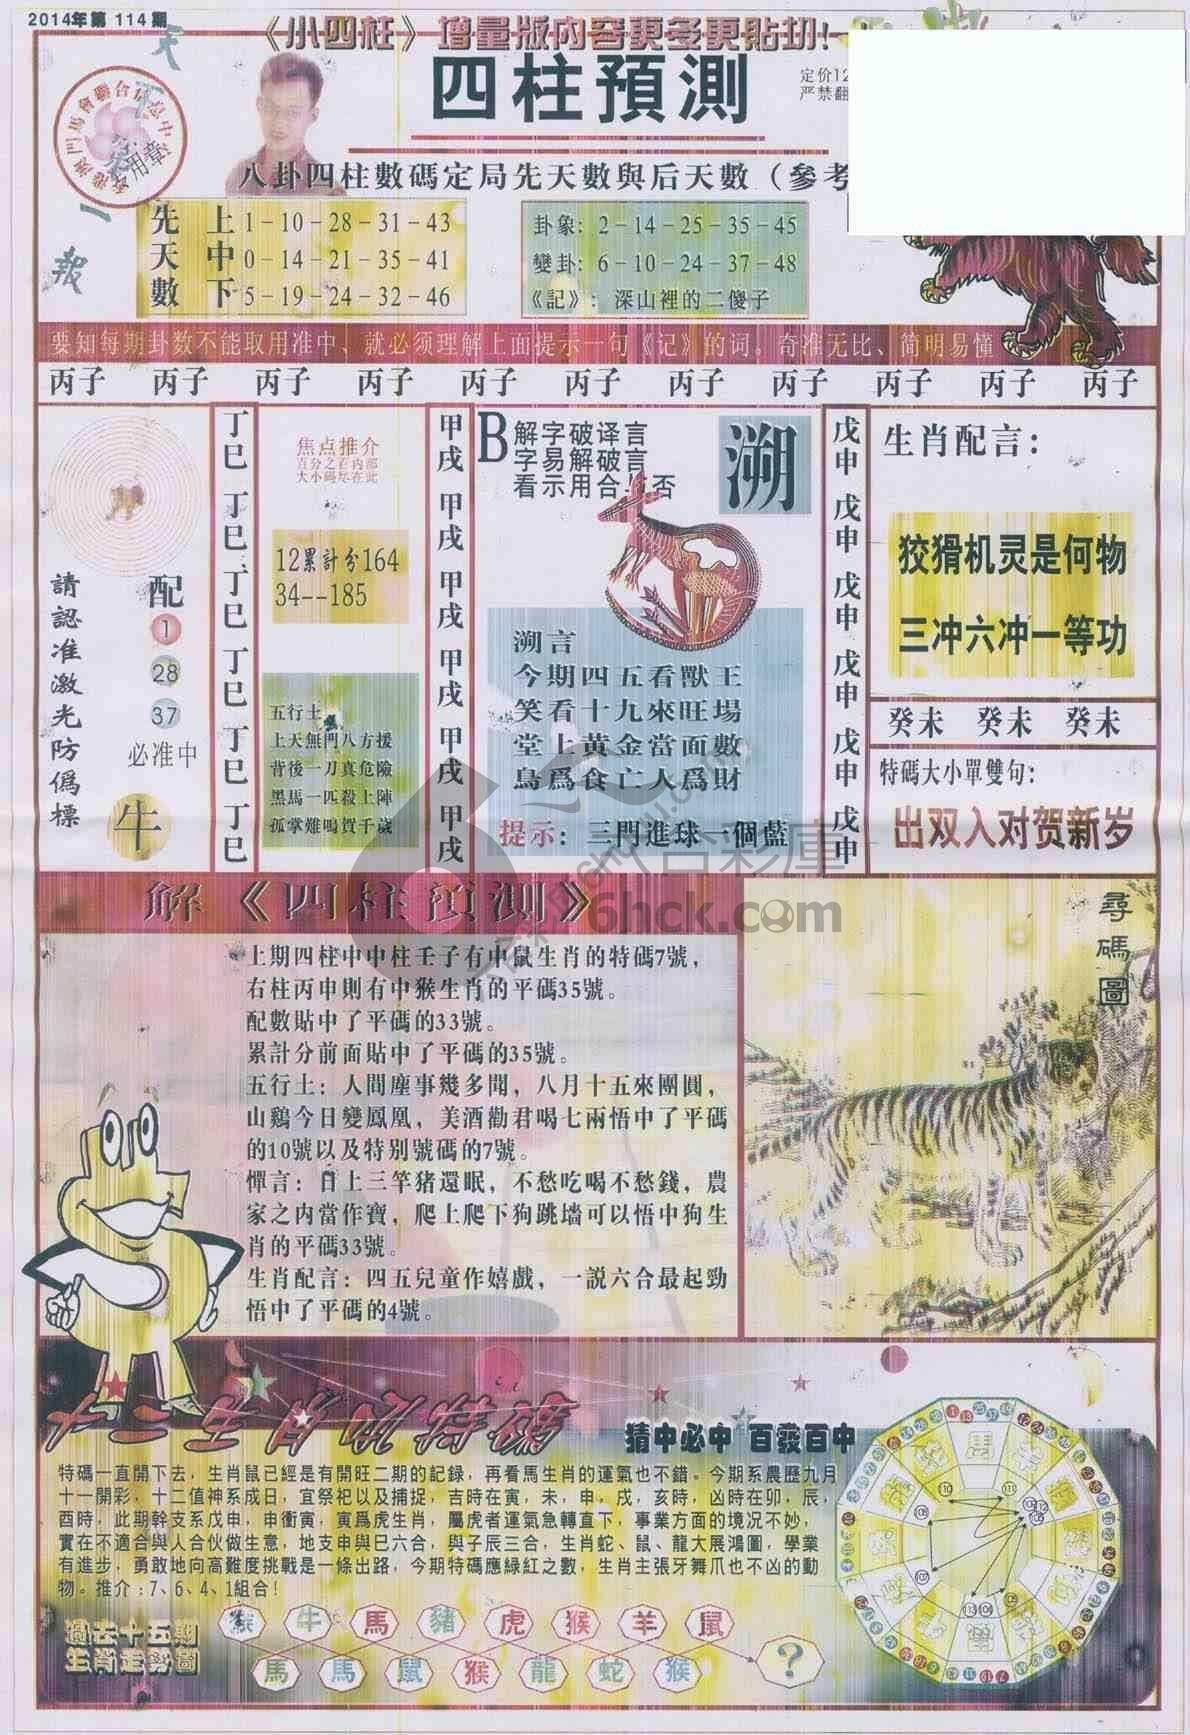 2014年第 114 期
《小四柱》增量版内容更多更貼切!
四柱預測
定价12
严禁翻
八卦四柱數碼定局先天數與后天數（參考
先天數
上 1－10－28－31－43
中 0－14－21－35－41
下 5－19－24－32－46
卦象: 2－14－25－35－45
變卦: 6－10－24－37－48
《記》: 深山裡的二傻子
要知每期卦数不能取用准中、就必须理解上面提示一句《记》的词。奇准无比、简明易懂
丙子 丙子 丙子 丙子 丙子 丙子 丙子 丙子 丙子 丙子 丙子
請認准激光防僞標
配
1
28
37
必准中
牛
丁巳 丁巳 丁巳 丁巳 丁巳 丁巳
焦点推介
百分之百内部
大小码尽在此
12累計分164
34--185
五行土
上天無門八方援
背後一刀真危險
黑馬一匹殺上陣
孤掌難鳴賀千歲
甲戌 甲戌 甲戌 甲戌 甲戌 甲戌
B 解字破译言
字易解破言
看示用合与否
溯
溯言
今期四五看獸王
笑看十九來旺場
堂上黄金當面數
鳥爲食亡人爲財
提示: 三門進球一個藍
戊申 戊申 戊申 戊申 戊申 戊申
生肖配言:
狡猾机灵是何物
三冲六冲一等功
癸未 癸未 癸未
特碼大小單雙句:
出双入对贺新岁
六合彩庫
6hck.com
解《四柱預測》
上期四柱中中柱壬子有中鼠生肖的特碼7號，
右柱丙申則有中猴生肖的平碼35號。
配數貼中了平碼的33號。
累計分前面貼中了平碼的35號。
五行土: 人間塵事幾多聞，八月十五來團圓，
山鷄今日變鳳凰，美酒勸君喝七兩悟中了平碼
的10號以及特别號碼的7號。
憚言: 日上三竿猪還眠，不愁吃喝不愁錢，農
家之内當作寶，爬上爬下狗跳墻可以悟中狗生
肖的平碼33號。
生肖配言: 四五兒童作嬉戲，一説六合最起勁
悟中了平碼的4號。
尋碼圖
猜中必中 百發百中
特碼一直開下去，生肖鼠已經是有開旺二期的記録，再看馬生肖的運氣也不錯。今期系農歷九月
十一開彩，十二值神系成日，宜祭祀以及捕捉，吉時在寅，未，申，戌，亥時，凶時在卯，辰，
酉時，此期幹支系戊申，申衝寅，寅爲虎生肖，屬虎者運氣急轉直下，事業方面的境况不妙，
實在不適合與人合伙做生意，地支申與巳六合，與子辰三合，生肖蛇、鼠、龍大展鴻圖，學業
有進步，勇敢地向高難度挑戰是一條出路，今期特碼應緑紅之數，生肖主張牙舞爪也不凶的動
物。推介:7、6、4、1組合!
過去十五期
生肖走勢圖
猴 牛 馬 豬 虎 猴 羊 鼠
馬 馬 鼠 猴 龍 蛇 猴 ?